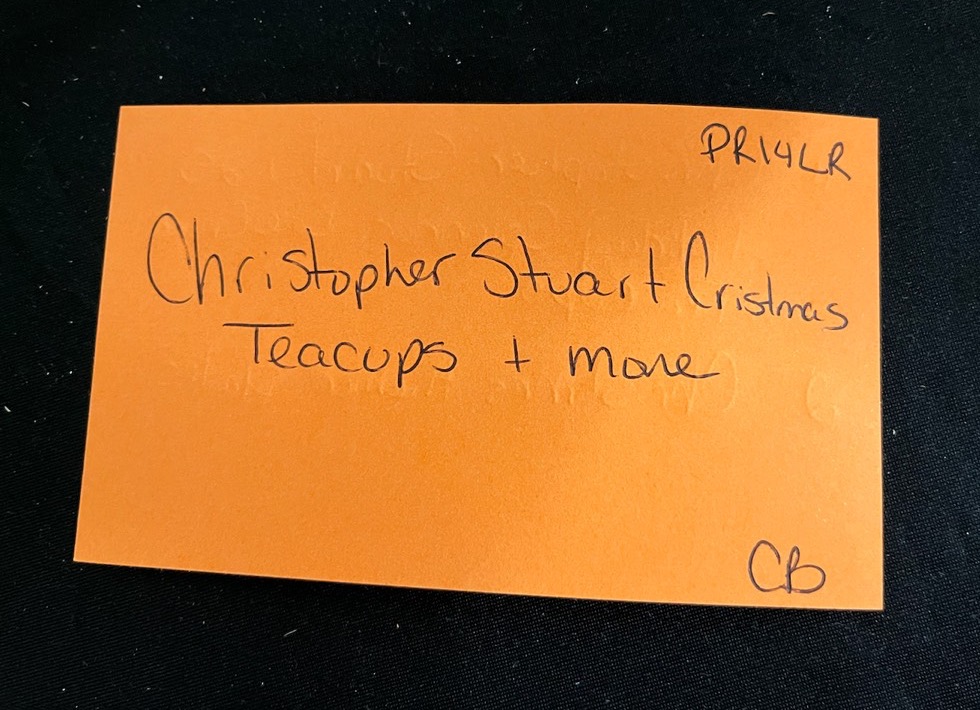 PR14LR
Christopher Stuart Cristmas
Teacups + more
CB